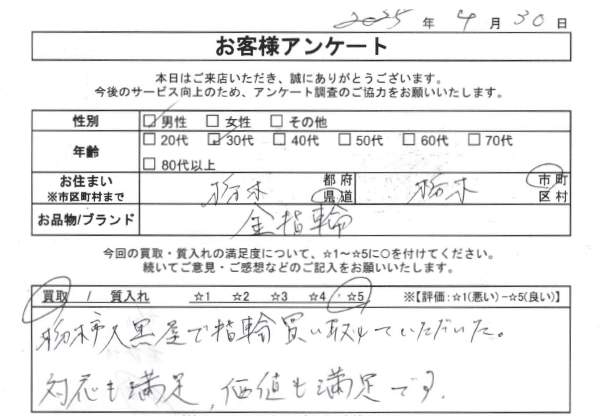 2025 年 4 月 30 日
お客様アンケート
本日はご来店いただき、誠にありがとうございます。
今後のサービス向上のため、アンケート調査のご協力をお願いいたします。
性別 ☑男性 □女性 □その他
年齢 □20代 ☑30代 □40代 □50代 □60代 □70代
□80代以上
お住まい ※市区町村まで 栃木 都府県道 栃木 市町区村
お品物/ブランド 金指輪
今回の買取・質入れの満足度について、☆1～☆5に○を付けてください。
続いてご意見・ご感想などのご記入をお願いいたします。
買取 / 質入れ ☆1 ☆2 ☆3 ☆4 ☆5 ※【評価:☆1(悪い)－☆5(良い)】
大黒屋で指輪買い取りしていただいた。
対応も満足、価値も満足です。